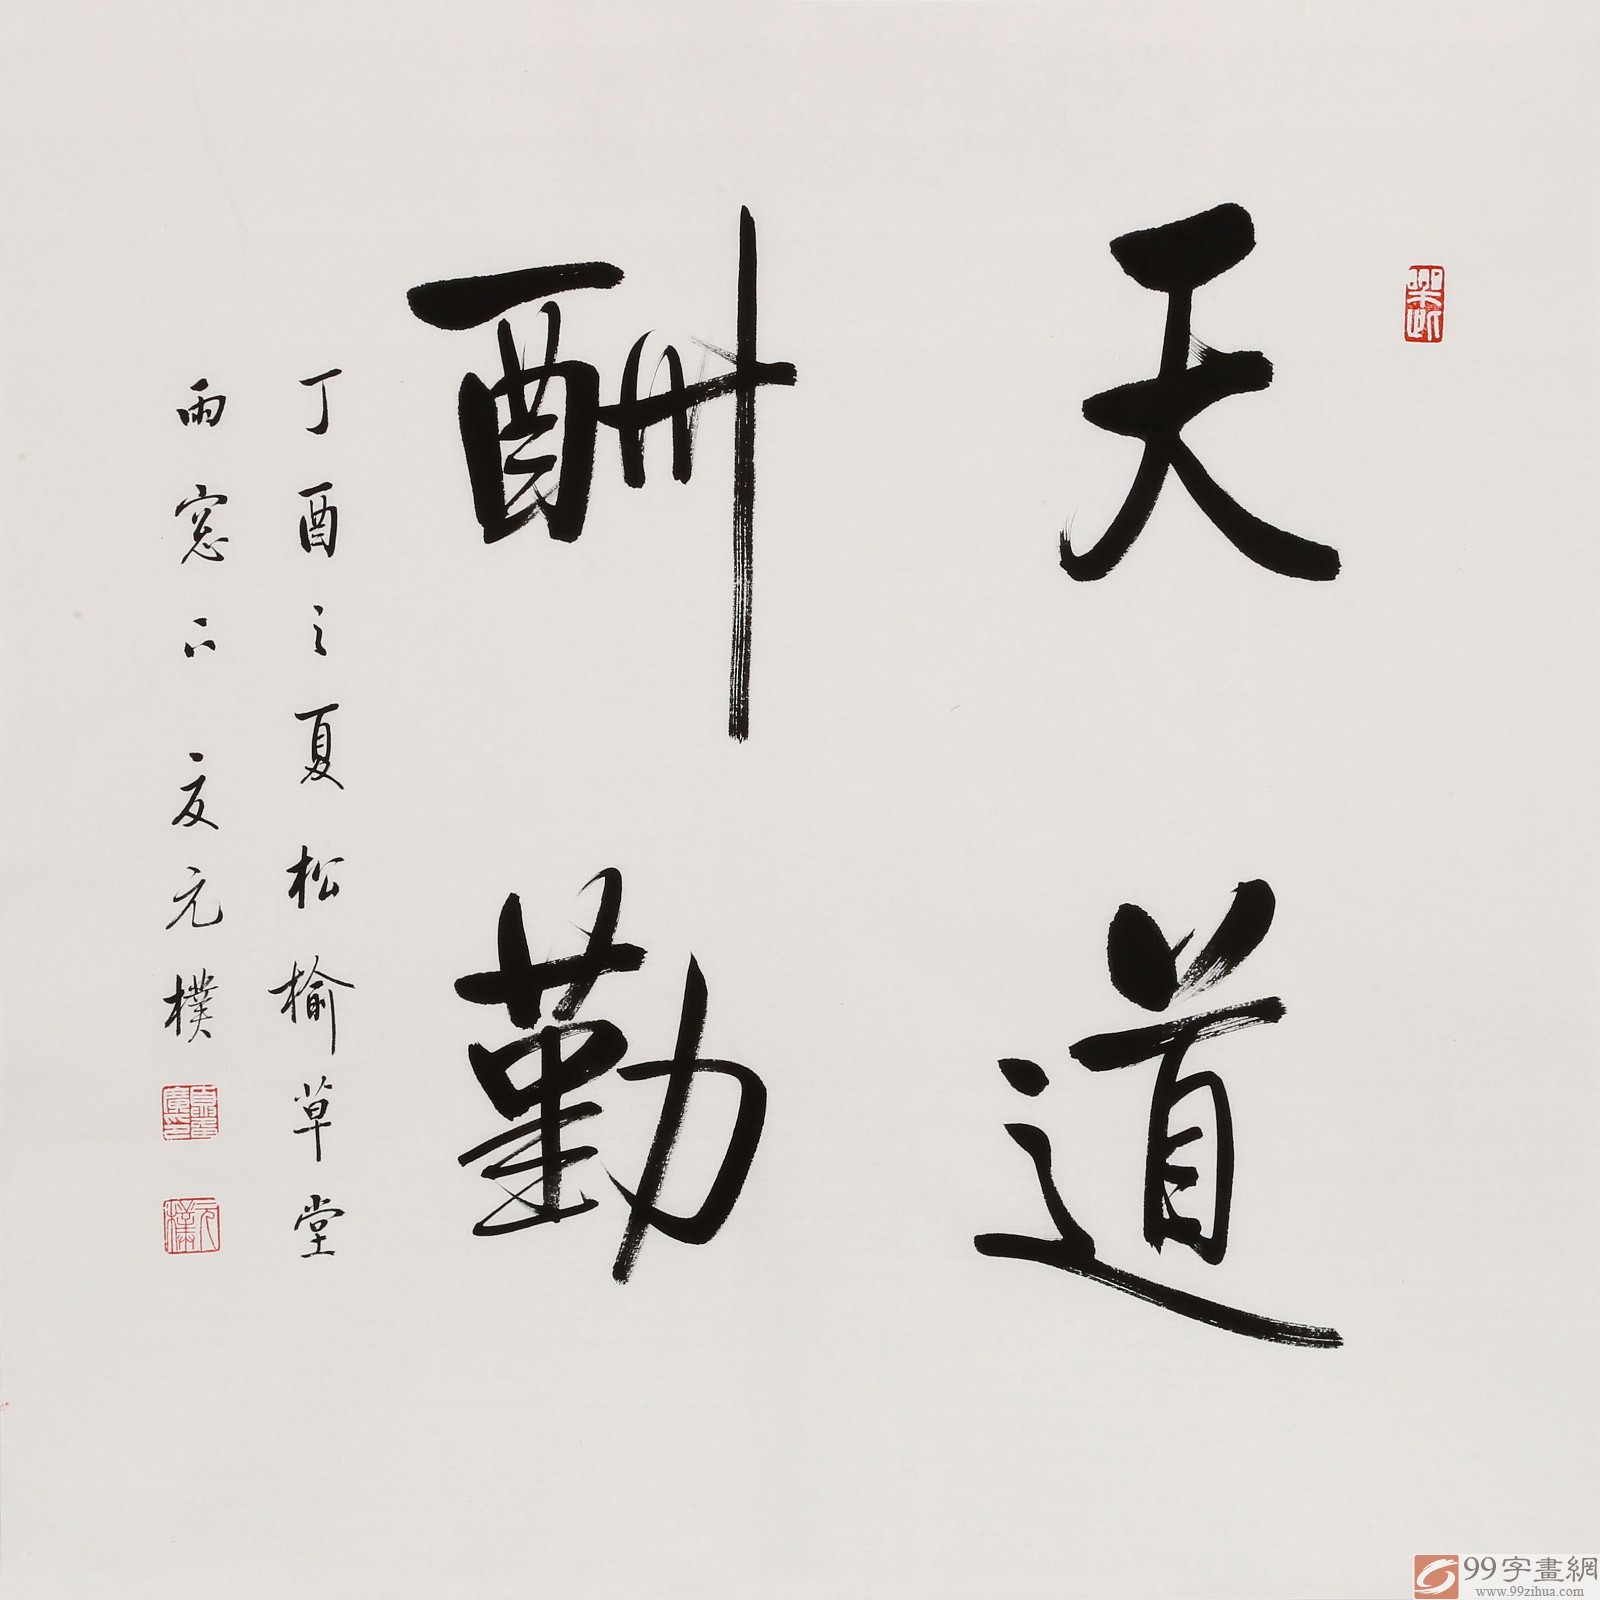 天道
酬勤
丁酉之夏松榆草堂
雨窓下袁元樸
元樸
99字畫網
www.99zihua.com